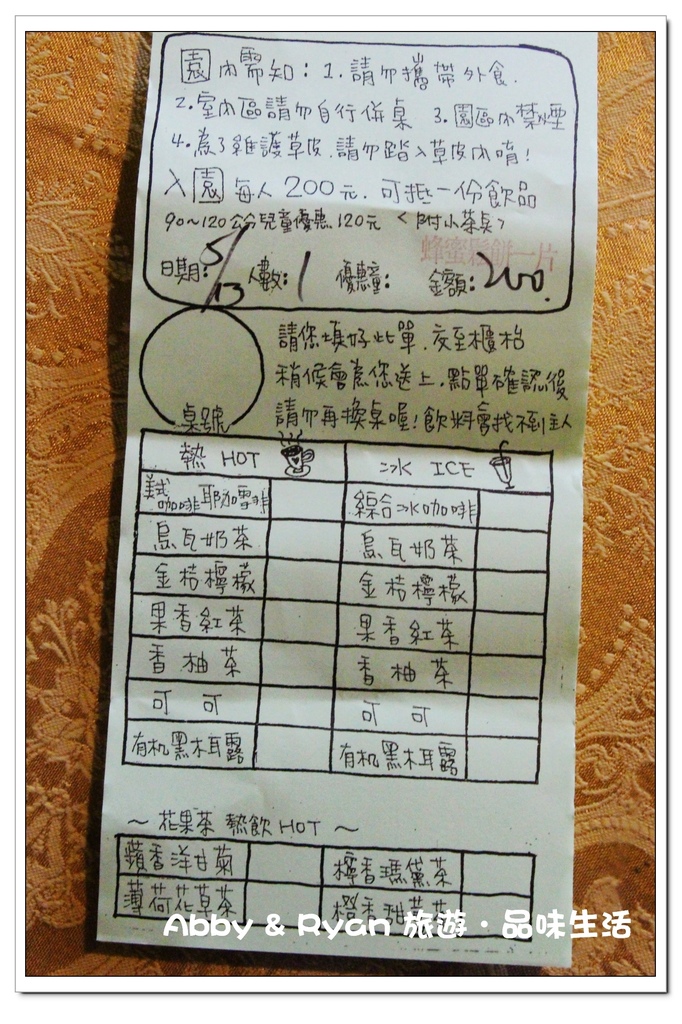 園內需知：1.請勿攜帶外食.
2.室內區請勿自行併桌 3.園區內禁煙
4.為了維護草皮.請勿踏入草皮內唷!
入園每人200元.可抵一份飲品
90~120公分兒童優惠120元 <附小茶點>
蜂蜜鬆餅一片
日期:5/13 人數:1 優惠童: 金額:200.
請您填好此單.交至櫃枱
稍候會為您送上.點單確認後
桌號 請勿再換桌喔!飲料會找不到主人
熱 HOT 冰 ICE
美式咖啡 耶加雪啡 綜合冰咖啡
烏瓦奶茶 烏瓦奶茶
金桔檸檬 金桔檸檬
果香紅茶 果香紅茶
香柚茶 香柚茶
可可 可可
有机黑木耳露 有机黑木耳露
~ 花果茶 熱飲 HOT ~
蘋香洋甘菊 檸香瑪黛茶
薄荷花草茶 橙香甜
Abby & Ryan 旅遊·品味生活